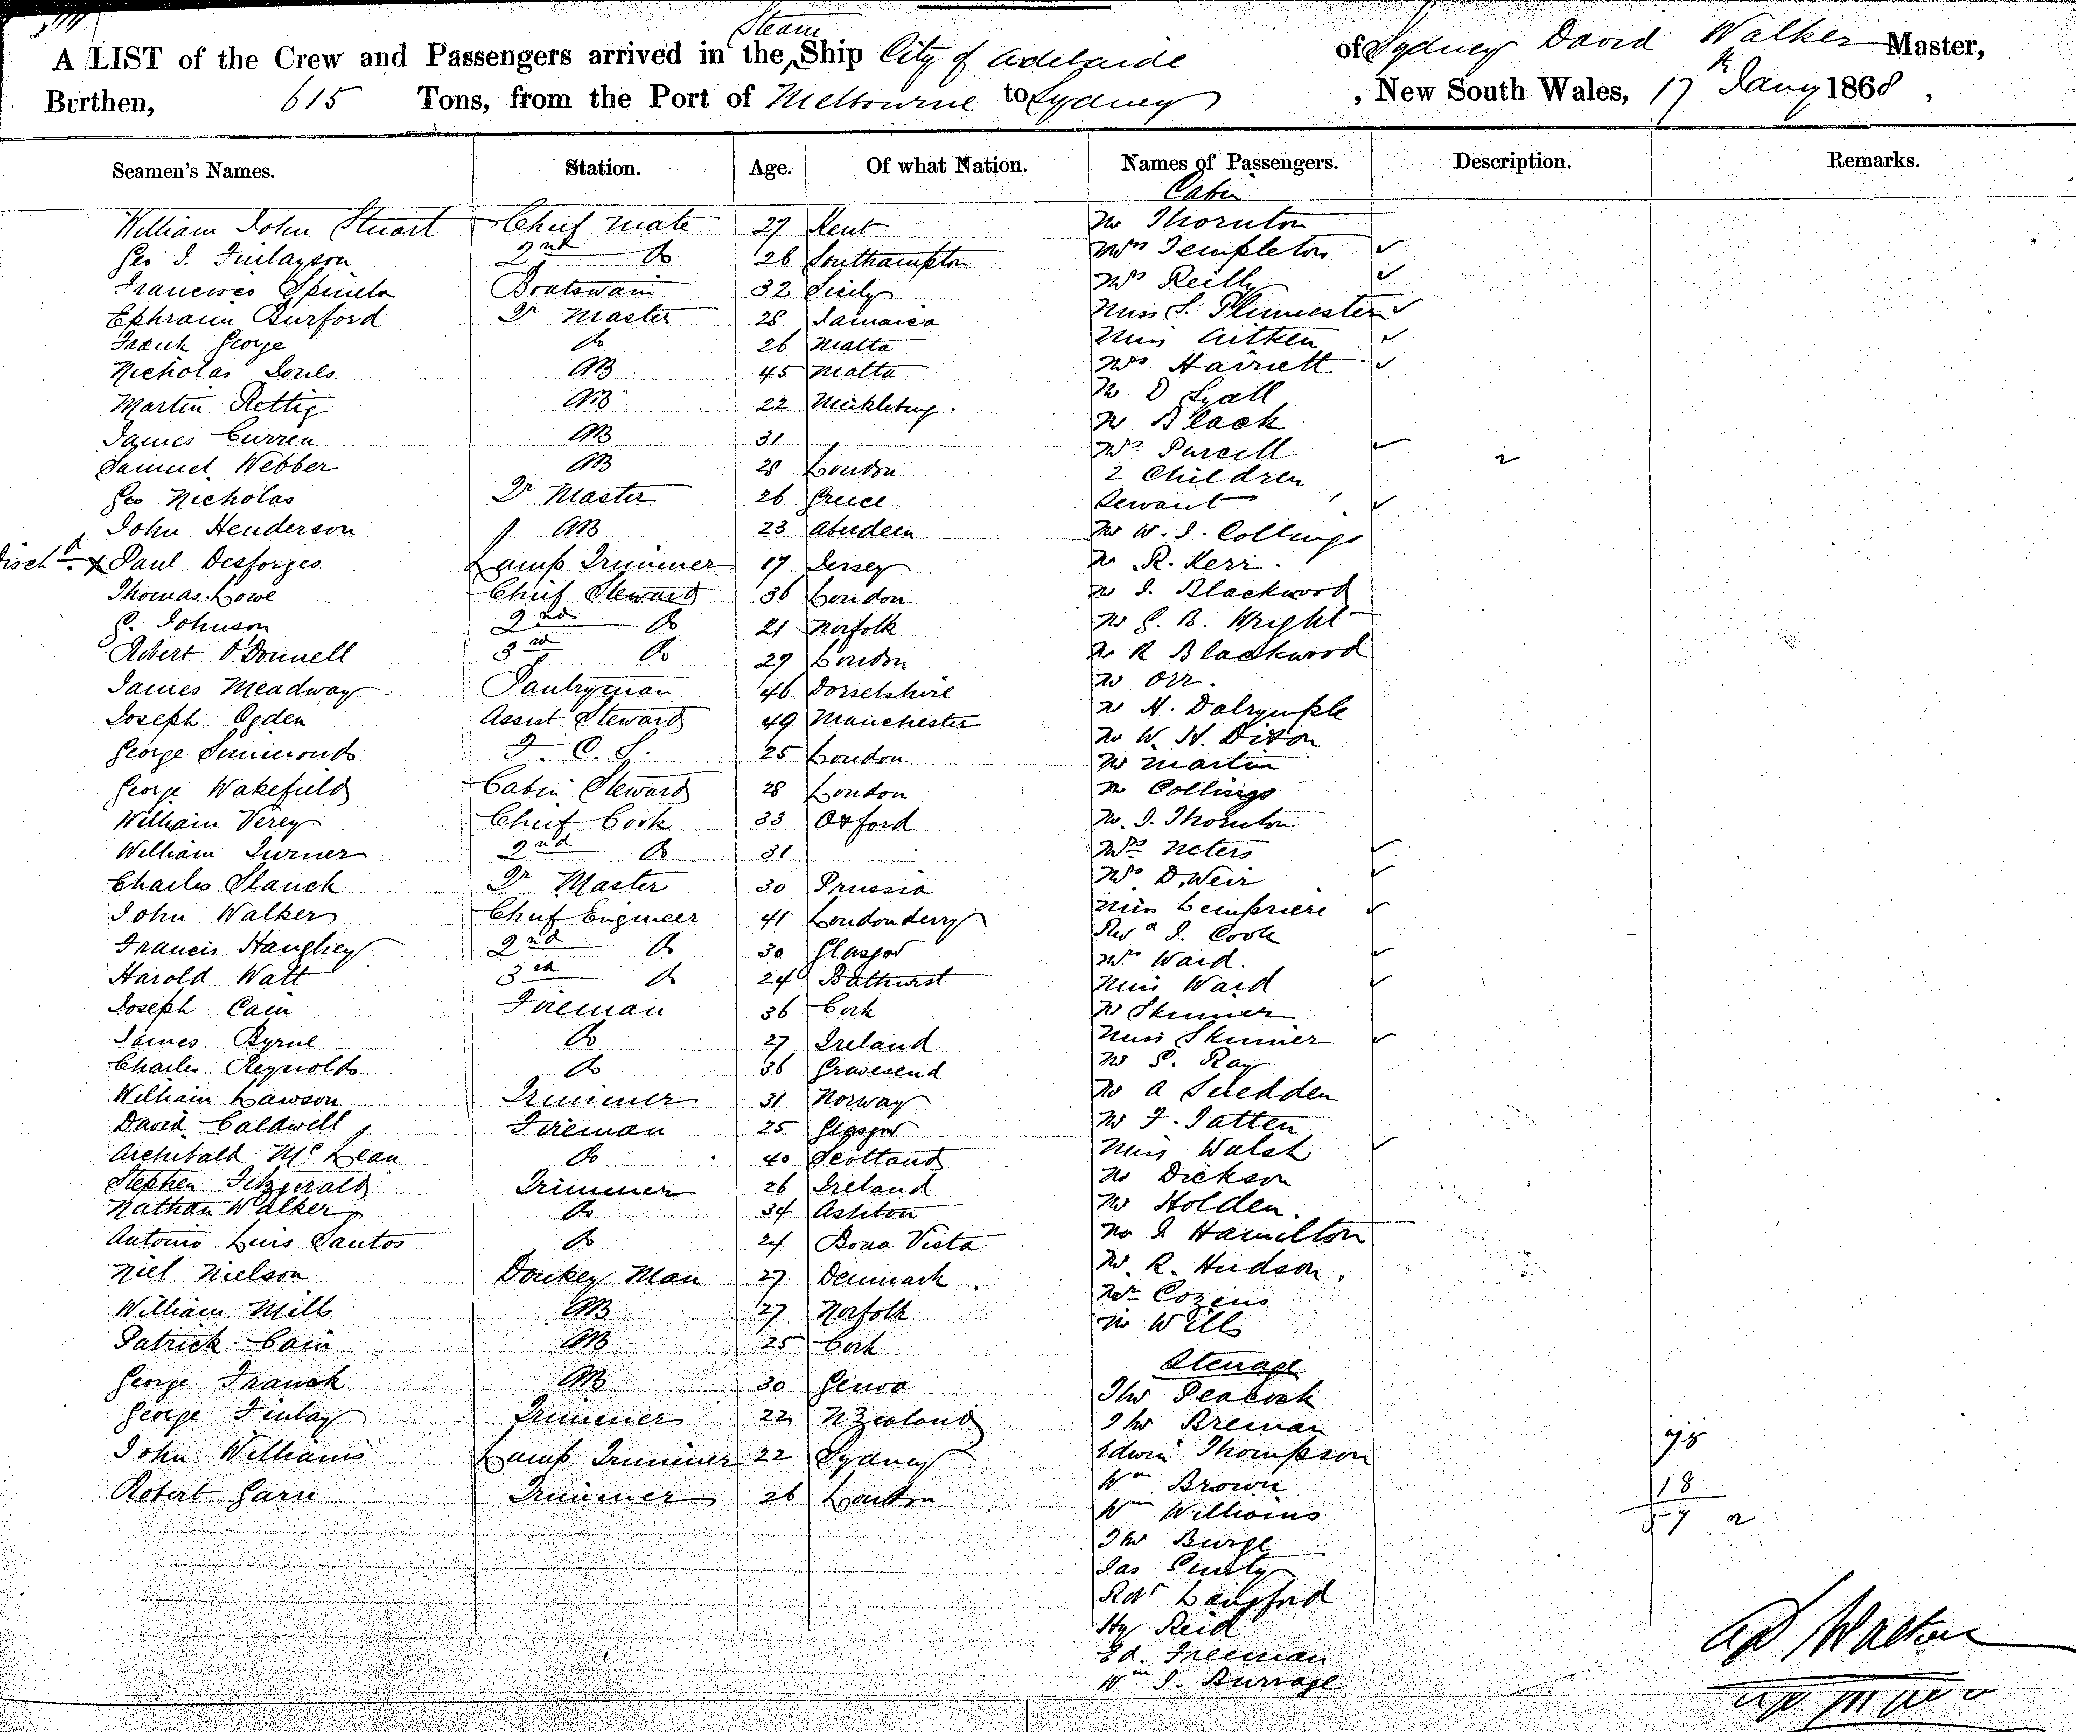 A LIST of the Crew and Passengers arrived in the Steam Ship City of Adelaide of Sydney David Walker Master,
Burthen, 615 Tons, from the Port of Melbourne to Sydney, New South Wales, 17th Jany 1868,
Seamen's Names. Station. Age. Of what Nation. Names of Passengers. Description. Remarks.
Cabin
William John Stuart Chief Mate 27 Kent Mr Thornton
Geo J. Finlayson 2nd Do 26 Southampton Mrs Templeton
Boatswain 32 Sicily Mrs Reilly
Ephraim Burford Qr Master 28 Jamaica Miss S.
Frank George Do 26 Malta Miss Aitken
Nicholas AB 45 Malta Mrs Harriett
Martin Rettig AB 22 Mr D Lyall
James Curren AB 31 Mr Black
Samuel Webber AB 28 London Mrs Purcell
2 Children
Geo Nicholas Qr Master 26 Greece Servant
John Henderson AB 23 Aberdeen Mr W. J. Collings
Disch'd x Paul Desforges Lamp Trimmer 17 Jersey Mr R. Kerr.
Thomas Lowe Chief Steward 36 London Mr J. Blackwood
G. Johnson 2nd Do 21 Norfolk Mr G. B. Wright
Robert O'Donnell 3rd Do 29 London Mr R Blackwood
James Meadway Pantryman 46 Dorsetshire Mr Orr.
Joseph Ogden Assist Steward 49 Manchester Mr H. Dalrymple
George Simmonds F. C. S. 25 London Mr W. H. Dixon
Mr Martin
George Wakefield Cabin Steward 28 London Mr Collings
William Verey Chief Cook 33 Oxford Mr. J. Thornton
William Turner 2nd Do 31 Mrs
Charles Qr Master 30 Prussia Mrs D. Weir
John Walker Chief Engineer 41 Londonderry Miss Lempriere
Francis Haughey 2nd Do 30 Glasgow Revd J. Cook
Mrs Ward.
Harold Watt 3rd Do 24 Bathurst Miss Ward
Joseph Cain Fireman 36 Cork Mr Skinner
James Byrne Do 27 Ireland Miss Skinner
Charles Reynolds Do 36 Gravesend Mr S. Ray
William Lawson Trimmer 31 Norway Mr A Snedden
David Caldwell Fireman 25 Glasgow Mr F. Tatten
Archibald McLean Do 40 Scotland Miss Walsh
Stephen Fitzgerald Trimmer 26 Ireland Mr Dickson
Nathan Walker Do 34 Ashton Mr Holden.
Antonio Luis Santos Do 24 Bona Vista Mr J Hamilton
Niel Nielson Donkey Man 27 Denmark Mr. R. Hudson.
William Mills AB 27 Norfolk Mr Cozens
Mr Wills
Patrick Cain AB 25 Cork
Steerage
George Franck AB 30 Genoa Thos Peacock
George Finlay Trimmer 22 N Zealand Thos Brennan
John Williams Lamp Trimmer 22 Sydney Edwin Thompson 75
Robert Trimmer 26 London Wm Brown 18
Wm Williams 57 2
Thos Burge
Jas
Robt Langford
Hy Reid
Ed. Freeman
Wm J. Burrage